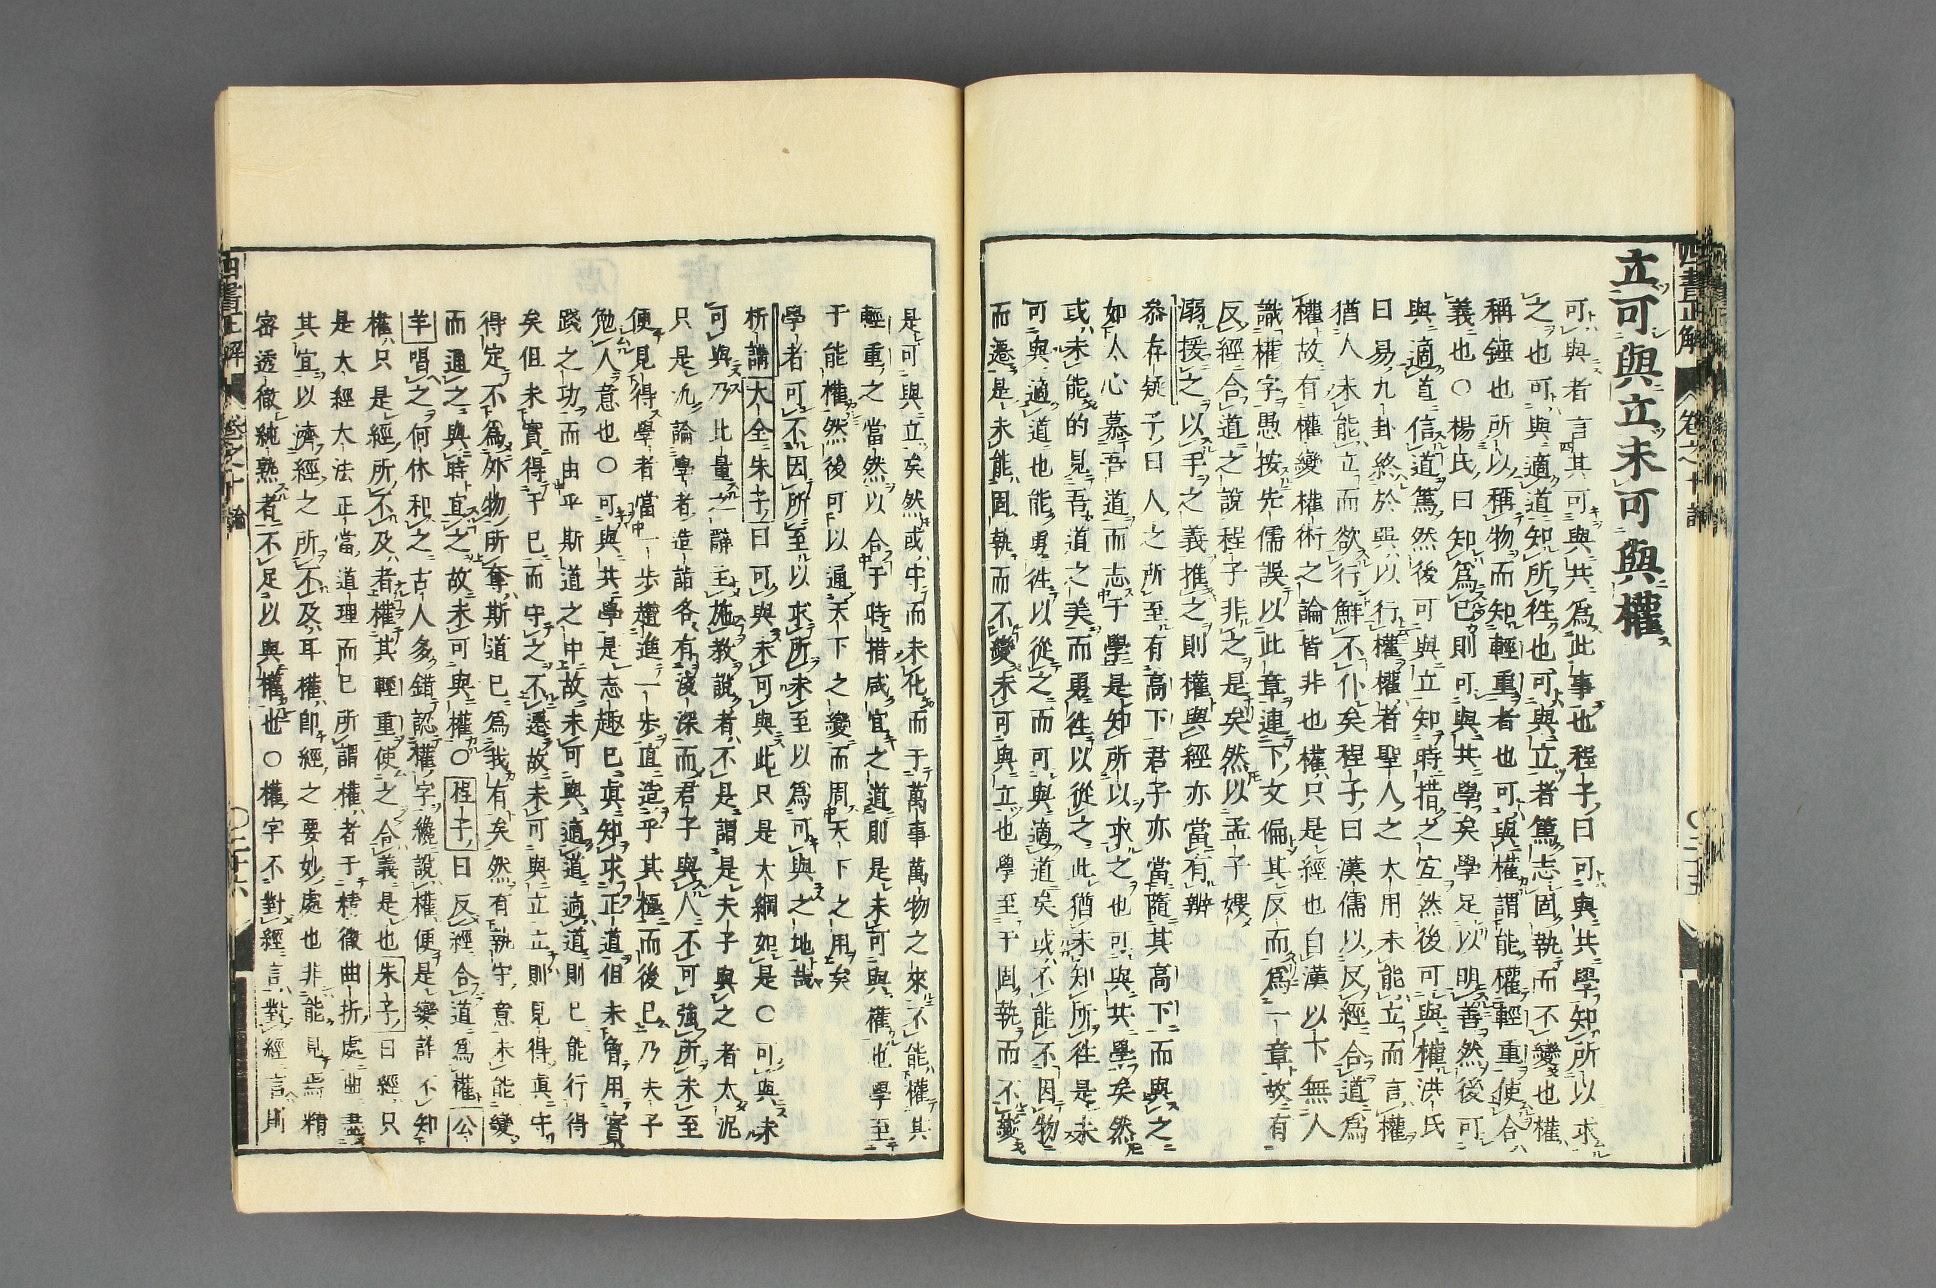 立可與立未可與權
可與者言其可與共爲此事也程子曰可與共學知所以求
之也可與適道知所往也可與立者篤志固執而不變也權
稱錘也所以稱物而知輕重者也可與權謂能權輕重使合
義也○楊氏曰知爲已則可與共學矣學足以明善然後可
與適道信道篤然後可與立知時措之宜然後可與權洪氏
曰易九卦終於巽以行權權者聖人之大用未能立而言權
猶人未能立而欲行鮮不仆矣程子曰漢儒以反經合道爲
權故有權變權術之論皆非也權只是經也自漢以下無人
識權字愚按先儒誤以此章連下文偏其反而爲一章故有
反經合道之說程子非之是矣然以孟子嫂
溺援之以手之義推之則權與經亦當有辨
叅存疑子曰人之所至有高下君子亦當隨其高下而與之
如人心慕吾道而志于學是知所以求之也可與共學矣然
或未能的見吾道之美而勇往以從之此猶未知所往是未
可與適道也能勇往以從之而可與適道矣或不能不因物
而遷是未能固執而不變未可與立也學至于固執而不變
是可與立矣然或中而未化而于萬事萬物之來不能權其
輕重之當然以合于時措咸宜之道則是未可與權也學至
于能權然後可以通天下之變而周天下之用矣
學者可不因所至以求所未至以爲可與之地哉
析講大全朱子曰可與未可與此只是大綱如是○可與未
可與乃比量之辭主施教說者不是謂是夫子與之者太泥
只是汎論學者造詣各有淺深而君子與人不可強所未至
便見得學者當一步趲進一步直造乎其極而後已乃夫子
勉人意也○可與共學是志趣已眞知求正道但未曾用實
踐之功而由乎斯道之中故未可與適道適道則已能行得
矣但未實得于已而守之不遷故未可與立立則見得眞守
得定不爲外物所奪斯道已爲我有矣然有執守意未能變
而通之與時宜之故未可與權○程子曰反經合道爲權公
羊唱之何休和之古人多錯認權字纔說權便是變詐不知
權只是經所不及者權其輕重使之合義是也朱子曰經只
是大經大法正當道理而已所謂權者于精微曲折處曲盡
其宜以濟經之所不及耳權卽經之要妙處也非能見焉精
密透徹純熟者不足以與權也○權字不對經言對經言則
四書正解
卷之十論
○二十六
四書正解
卷之十論
○二十五